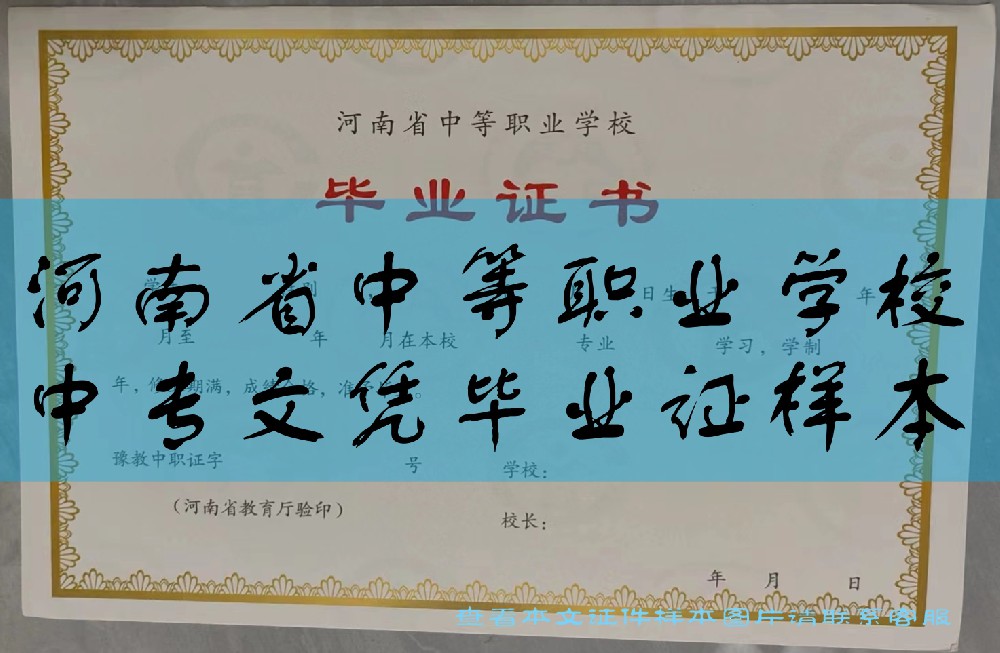 河南省中等职业学校
毕业证书
河南省中等职业学校
日生
年
月至 年 月在本校 专业 学习，学制
中专文凭毕业证样本
年，
期满，成
格，准
豫教中职证字 号 学校：
（河南省教育厅验印）
校长：
年 月 日
查看本文证件样本图片请联系客服